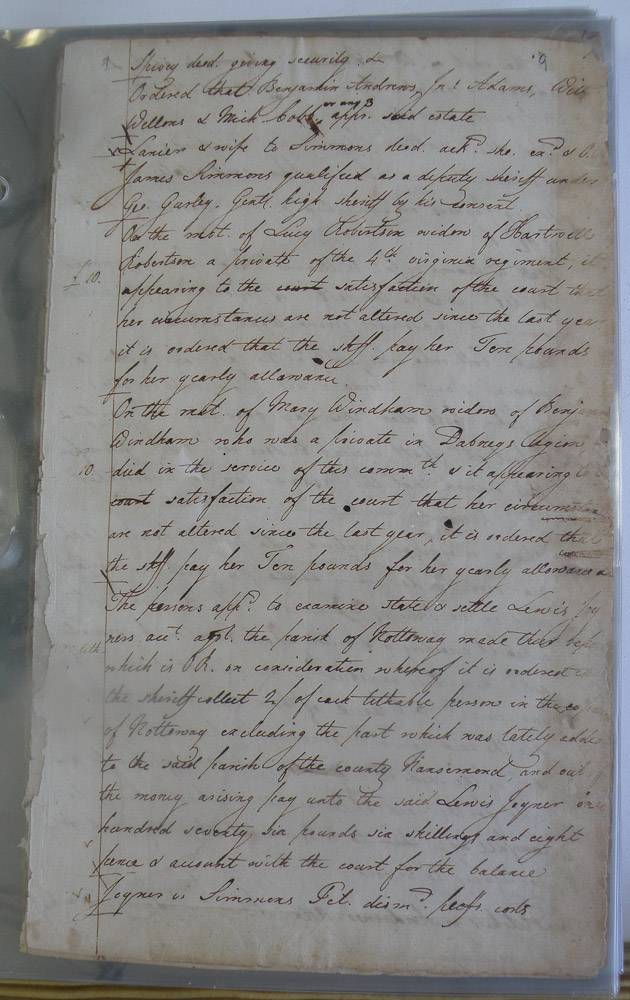 9
Spivey decd. giving security &
Ordered that Benjamin Andrews, Jn.o Adams, Will
Wellons & Mich Cobb, or any 3 appr. said estate
Lanier & wife to Simmons decd. ackd. sho. exd. & O.
James Simmons qualified as a deputy sheriff under
Geo. Gurley, Gentl. high sheriff by his consent
On the mot. of Lucy Robertson widow of Hartwell
Robertson a private of the 4th. virginia regiment, it
£ 10. appearing to the court satisfaction of the court that
her circumstances are not altered since the last year
it is ordered that the shff. pay her Ten pounds
for her yearly allowance.
On the mot. of Mary Windham widow of Benja
Windham who was a private in Dabneys legion,
10. died in the service of this commth. & it appearing to
court satisfaction of the court that her circumstan
are not altered since the last year, it is ordered that
the shff. pay her Ten pounds for her yearly allowance
The persons appd. to examine state & settle Lewis Joy
ners acct. agst. the parish of Nottoway made their repo
which is OR. on consideration whereof it is ordered
the sheriff collect 2/ of each tithable person in the
of Nottoway excluding the part which was lately adde
to the said parish of the county Nansemond, and out
the money arising pay unto the said Lewis Joyner one
hundred seventy six pounds six shillings and eight
pence & account with the court for the balance
Joyner vs Simmons Pet. dismd. plffs. costs